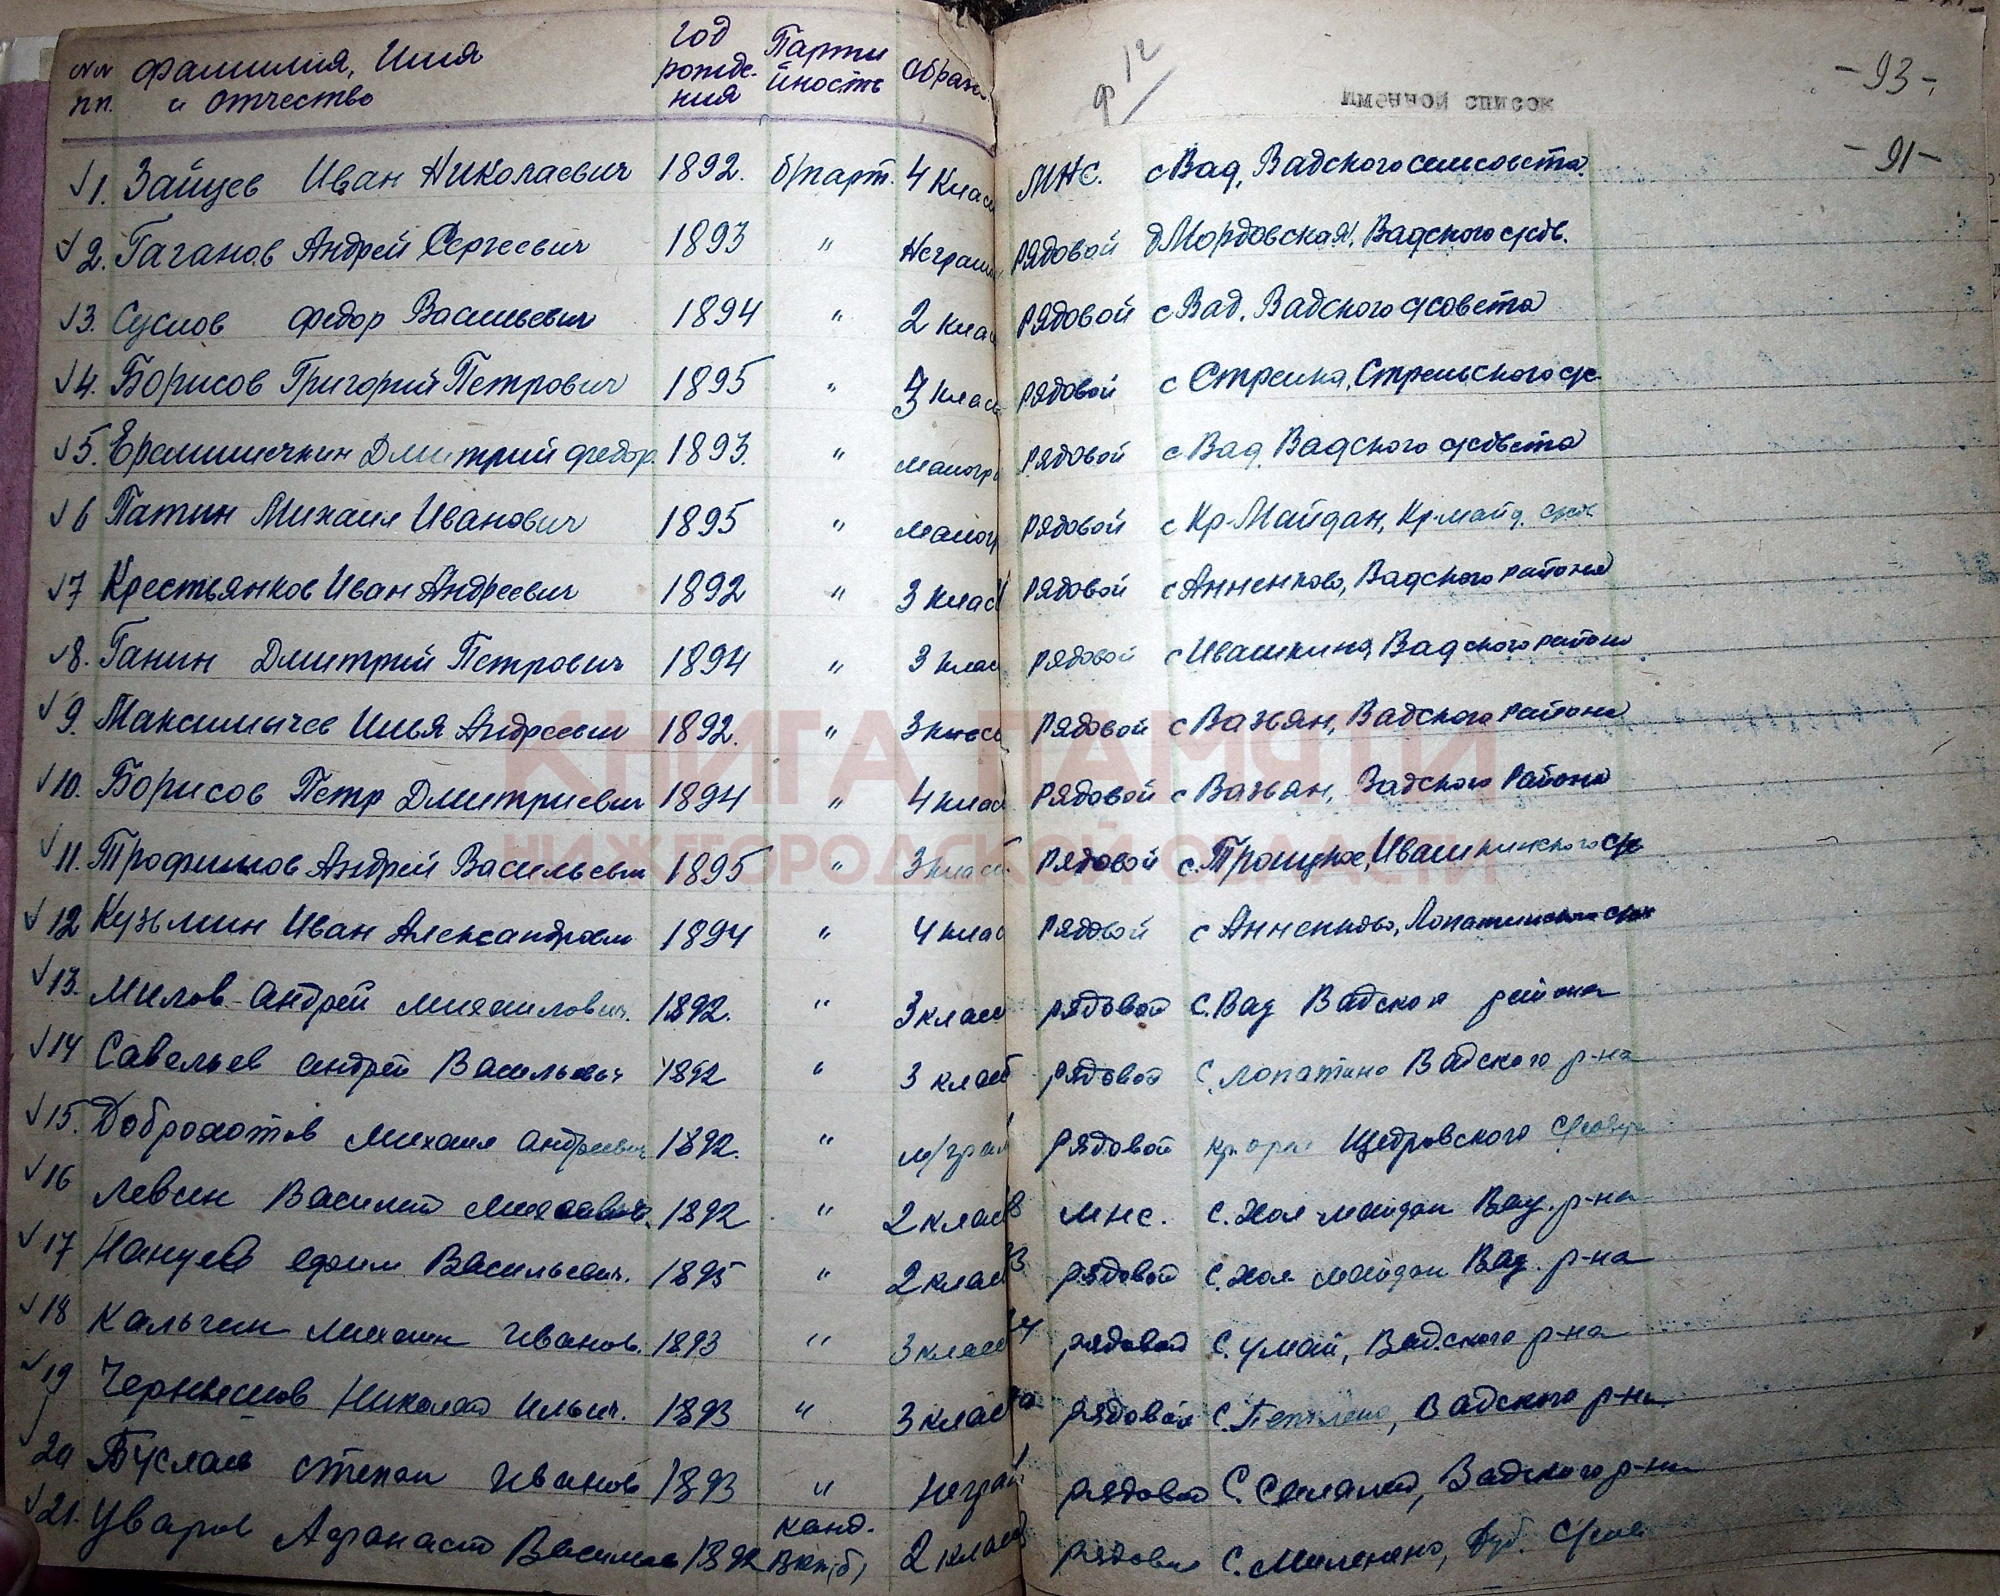 №№ пп. фамилия, Имя и отчество год рождения Партийность образ
ф 12
именной список
-93-
-91-
1. Зайцев Иван Николаевич 1892. б/парт. 4 класс МНС. с Вад, Вадского сельсовета
2. Гаганов Андрей Сергеевич 1893 " Неграм рядовой д Мордовская, Вадского с/сов.
3. Суслов Федор Васильевич 1894 " 2 клас рядовой с Вад, Вадского с/совета
4. Борисов Григорий Петрович 1895 " 3 клас рядовой с Стрелка, Стрельского с/с
5. Ерамишечкин Дмитрий Федор. 1893. " малогр рядовой с Вад, Вадского с/совета
6 Патин Михаил Иванович 1895 " малогр рядовой с Кр-Майдан, Кр-майд. с/сов
7 Крестьянков Иван Андреевич 1892 " 3 клас рядовой с Анненково, Вадского района
8. Ганин Дмитрий Петрович 1894 " 3 клас рядовой с Ивашкина, Вадского района
9. Максимычев Илья Андреевич 1892. " 3 класс рядовой с Вазьян, Вадского района
10. Борисов Петр Дмитриевич 1894 " 4 клас рядовой с Вазьян, Вадского района
11. Трофимов Андрей Васильевич 1895 " 3 клас рядовой с. Троицкое, Ивашкинского с/с
12 Кузьмин Иван Александрович 1894 " 4 клас рядовой с Анненково, Лопатинского
13. Милов Андрей Михаилович. 1892. " 3 класс рядовой с. Вад Вадского района
14 Савельев Андрей Васильевич 1892 " 3 класс рядовой с. Лопатино Вадского р-на
15. Доброхотов Михаил Андреевич 1892. " м/грам рядовой Щедровского
16 Левин Василий 1892 " 2 класс МНС. с. Хол майдан Вад. р-на
17 Ефим Васильевич. 1895 " 2 класс рядовой с. Хол майдан Вад. р-на
18 Кальгин Михаил Иванов. 1893 " 3 класс рядовой с. Умай, Вадского р-на
19 Николай Ильич. 1893 " 3 клас рядовой с. Вадского р-на
20 Буслаев Степан Иванов 1893 " неграм рядовой с. Вадского р-на
21. Уваров Афанасий Васильев 1892 канд. ВКП(б) 2 класс рядовой с.
КНИГА ПАМЯТИ
НИЖЕГОРОДСКОЙ ОБЛАСТИ